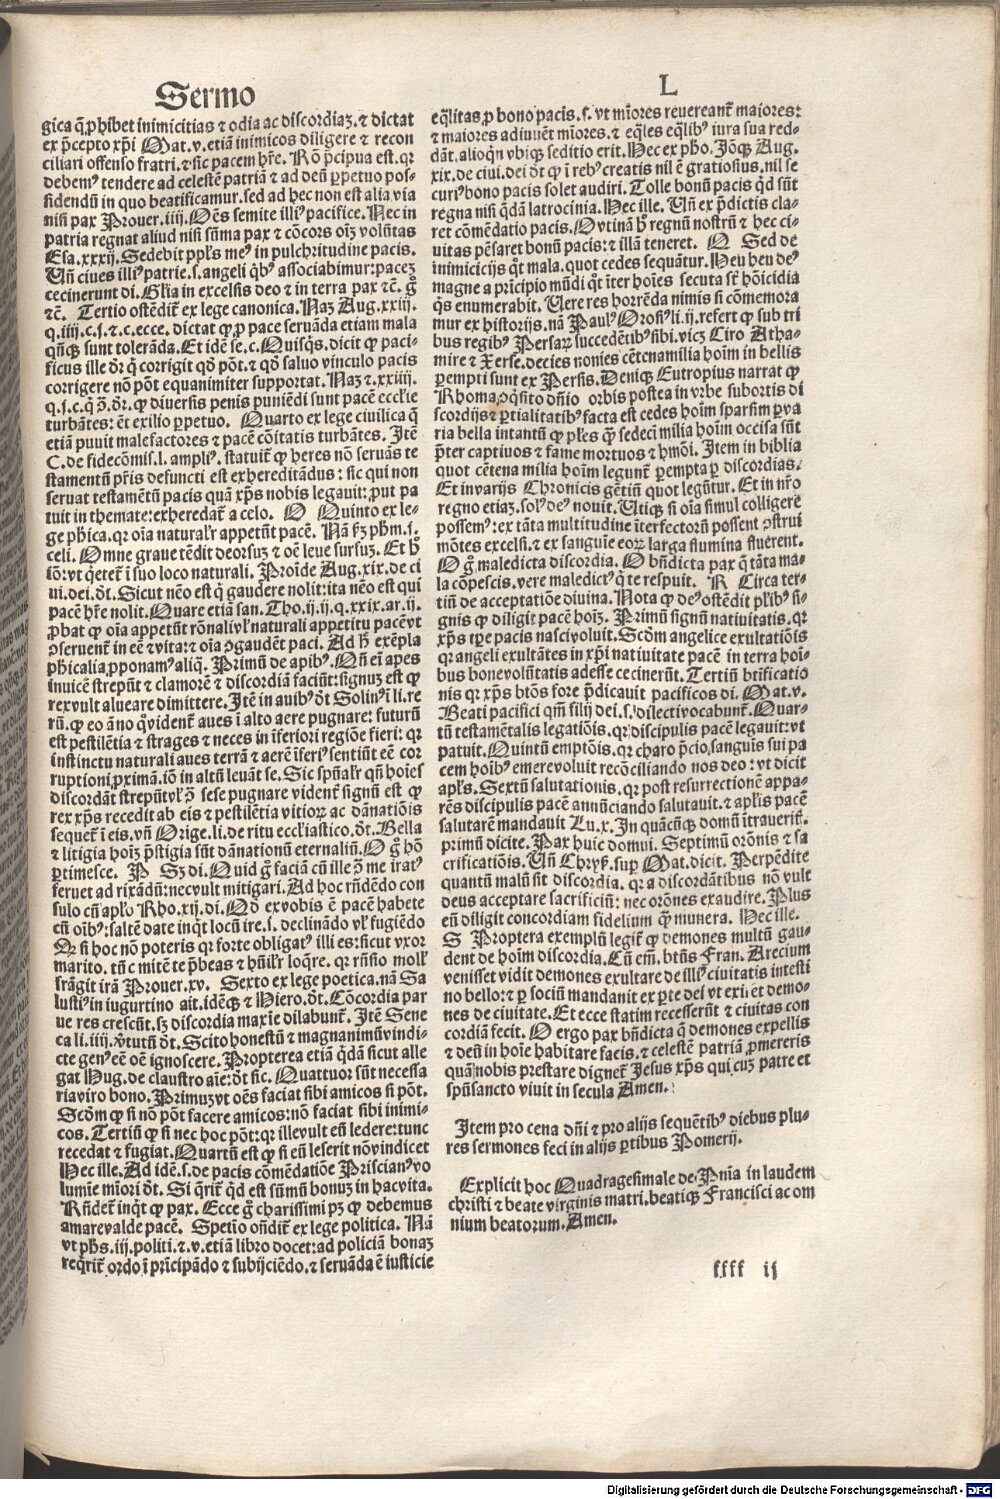 Sermo
L
gica q̃ ꝓhibet inimicitias ⁊ odia ac discordiaz. ⁊ dictat
ex p̃cepto xp̃i Mat. v. etiã inimicos diligere ⁊ recon
ciliari offenso fratri. ⁊ sic pacem hr̃e. Rõ p̃cipua est. qr
debemꝰ tendere ad celestẽ patriã ⁊ ad deũ ꝑpetuo pos-
sidendũ in quo beatificamur. sed ad hec non est alia via
nisi pax Prouer. iij. Oẽs semite illiꝰ pacifice. Nec in
patria regnat aliud nisi sũma pax ⁊ cõcors oĩz volũtas
Esa. xxxij. Sedebit pp̃ls meꝰ in pulchritudine pacis.
Uñ ciues illiꝰ patrie. s. angeli q̃bꝰ associabimur: pacez
cecinerunt di. Gl̃ia in excelsis deo ⁊ in terra pax ⁊c̃. g̊
⁊c̃. Tertio ostẽdit̃ ex lege canonica. Naz Aug. xxiij.
q. iiij. c. j. ⁊. c. ecce. dictat ꝙ ꝓ pace seruãda etiam mala
qñq̃ sunt tolerãda. Et idẽ se. c. Quisq̃s. dicit ꝙ paci-
ficus ille dr̃ q̃ corrigit qd̃ põt. ⁊ qd̃ saluo vinculo pacis
corrigere nõ põt equanimiter supportat. Naz ⁊. xxiiij.
q. j. c. q̃ ꝯ̃. dr̃. ꝙ diuersis penis puniẽdi sunt pacẽ eccl̃ie
turbãtes: ẽt exilio ꝑpetuo. Quarto ex lege ciuilica q̃
etiã puuit malefactores ⁊ pacẽ cõitatis turbãtes. Itẽ
C. de fidecõmis. l. ampliꝰ. statuit̃ ꝙ heres nõ seruãs te
stamentũ pr̃is defuncti est exhereditãdus: sic qui non
seruat testamẽtũ pacis quã xp̃s nobis legauit: ꝓut pa
tuit in themate: exheredat̃ a celo. O Quinto ex le-
ge ph̃ica. qr oĩa natural'r appetũt pacẽ. Nã ẜz ph̃m. j.
celi. Omne graue tẽdit deorsuz ⁊ oẽ leue sursuz. Et h̃
iõ: vt q̃etet̃ ĩ suo loco naturali. Proĩde Aug. xix. de ci
ui. dei. dt̃. Sicut nẽo est q̃ gaudere nolit: ita nẽo est qui
pacẽ hr̃e nolit. Quare etiã san. Tho. ij. ij. q. xxix. ar. ij.
ꝓbat ꝙ oĩa appetũt rõnaliuł naturali appetitu pacẽ vt
ꝯseruent̃ in eẽ ⁊ vita: ⁊ oĩa ꝯgaudẽt paci. Ad h̃ exẽpla
ph̃icalia ꝓponamꝰ aliq̃. Primũ de apibꝰ. Qñ eĩ apes
inuicẽ strepũt ⁊ clamorẽ ⁊ discordiã faciũt: signuz est ꝙ
rex vult alueare dimittere. Itẽ in auibꝰ dt̃ Solinꝰ ĩ li. re
rũ. ꝙ eo ãno q̃ vident̃ aues ĩ alto aere pugnare: futurũ
est pestilẽtia ⁊ strages ⁊ neces in ĩferiori regiõe fieri: qr
instinctu naturali aues terrã ⁊ aerẽ ĩferiꝰ sentiũt eẽ cor
ruptioni ꝓximã. iõ in altũ leuãt se. Sic spũał'r qñ hoĩes
discordãt strepũt vł ꝯ̃ sese pugnare vident̃ signũ est ꝙ
rex xp̃s recedit ab eis ⁊ pestilẽtia vitioꝝ ac dãnatiõis
sequet̃ ĩ eis. vñ Orige. li. de ritu eccł'iastico. dt̃. Bella
⁊ litigia hoĩz p̃stigia sũt dãnationũ eternaliũ. O g̊ hõ
ꝑtimesce. P Sz di. Quid g̊ faciã cũ ille ꝯ̃ me iratꝰ
feruet ad rixãdũ: nec vult mitigari. Ad hoc rñdẽdo con
sulo cũ apło Rho. xij. di. Qd̃ ex vobis ẽ pacẽ habete
cũ oĩbꝰ: saltẽ date inq̃t locũ ire. s. declinãdo vł fugiẽdo
Qr si hoc nõ poteris qr forte obligatꝰ illi es: sicut vxor
marito. tũc mitẽ te p̃beas ⁊ hũił'r loq̃re. qr rñsio moll'
frãgit irã Prouer. xv. Sexto ex lege poetica. nã Sa
lustiꝰ in iugurtino ait. idẽq̃ ⁊ Hiero. dt̃. Cõcordia par
ue res crescũt. sz discordia maxĩe dilabunt̃. Itẽ Sene
ca li. iiij. v̓tutũ dt̃. Scito honestũ ⁊ magnanimũ vindi-
cte genꝰ eẽ oẽ ignoscere. Propterea etiã q̃dã sicut alle
gat Hug. de claustro aĩe: dt̃ sic. Quattuor sũt necessa
ria viro bono. Primuz vt oẽs faciat sibi amicos si põt.
Scd̃m ꝙ si nõ põt facere amicos: nõ faciat sibi inimi-
cos. Tertiũ ꝙ si nec hoc põt: qr ille vult eũ ledere: tunc
recedat ⁊ fugiat. Quartũ est ꝙ si eũ leserit nõ vindicet
Hec ille. Ad idẽ. s. de pacis cõmẽdatiõe Priscianꝰ vo
lumĩe mĩori dt̃. Si q̃rit̃ q̃d est sũmũ bonuz in hac vita.
Rñdet̃ inq̃t ꝙ pax. Ecce g̊ charissimi pz ꝙ debemus
amare valde pacẽ. Spetĩo oñdit̃ ex lege politica. Nã
vt ph̃s. iij. politi. ⁊. v. etiã libro docet: ad policiã bonaz
req̃rit̃ ordo ĩ prĩcipãdo ⁊ subijciẽdo. ⁊ seruãda ẽ iusticie
eq̃litas ꝓ bono pacis. s. vt mĩores reuereant̃ maiores:
⁊ maiores adiuuẽt mĩores. ⁊ eq̃les eq̃libꝰ iura sua red-
dãt. alioq̃n vbiq̃ seditio erit. Hec ex ph̃o. Iõq̃ Aug.
xix. de ciui. dei dt̃ ꝙ ĩ rebꝰ creatis nil ẽ gratiosius. nil se
curiꝰ bono pacis solet audiri. Tolle bonũ pacis q̃d sũt
regna nisi q̃dã latrocinia. Hec ille. Uñ ex p̃dictis cla-
ret cõmẽdatio pacis. O vtinã h̃ regnũ nostrũ ⁊ hec ci-
uitas pẽsaret bonũ pacis: ⁊ illã teneret. Q Sed de
inimicicijs q̃t mala. quot cedes sequãtur. Heu heu deꝰ
magne a prĩcipio mũdi q̃t ĩter hoĩes secuta sf̃ hõicidia
q̃s enumerabit. Uere res horrẽda nimis si cõmemora
mur ex historijs. nã Paulꝰ Orosiꝰ li. ij. refert ꝙ sub tri
bus regibꝰ Persaꝝ succedẽtibꝰ sibi. vicz Ciro Atha-
mire ⁊ Xerse. decies nonies cẽtena milia hoĩm in bellis
ꝑempti sunt ex Persis. Deniq̃ Eutropius narrat ꝙ
Rhoma ꝯq̃sito dñio orbis postea in vrbe subortis di
scordijs ⁊ ꝑtialitatibꝰ facta est cedes hoĩm sparsim ꝑ va
ria bella intantũ ꝙ pl̃es q̃ sedeci milia hoĩm occisa sũt
p̃ter captiuos ⁊ fame mortuos ⁊ hmõi. Item in biblia
quot cẽtena milia hoĩm legunt̃ ꝑempta ꝑ discordias.
Et in varijs Chronicis gẽtiũ quot legũtur. Et in nr̃o
regno etiaz. solꝰ deꝰ nouit. Utiq̃ si oĩa simul colligere
possemꝰ: ex tãta multitudine ĩterfectorũ possent ꝯstrui
mõtes excelsi. ⁊ ex sanguĩe eoꝝ larga flumina fluerent.
O g̊ maledicta discordia. O bñdicta pax q̃ tãta ma-
la cõpescis. vere maledictꝰ q̃ te respuit. R Circa ter-
tiũ de acceptatiõe diuina. Nota ꝙ deꝰ ostẽdit pl̃ibꝰ si-
gnis ꝙ diligit pacẽ hoĩz. Primũ signũ natiuitatis. qr
xp̃s tp̃e pacis nasci voluit. Scd̃m angelice exultatiõis
qr angeli exultãtes in xp̃i natiuitate pacẽ in terra hoĩ-
bus bone volũtatis adesse cecinerũt. Tertiũ btĩficatio
nis qr xp̃s btõs fore p̃dicauit pacificos di. Mat. v.
Beati pacifici qm̃ filij dei. s. dilecti vocabunt̃. Quar-
tũ testamẽtalis legatiõis. qr discipulis pacẽ legauit: vt
patuit. Quintũ emptõis. qr charo p̃cio, sanguĩs sui pa
cem hoĩbꝰ emere voluit recõciliando nos deo: vt dicit
apl̃s. Sextũ salutationis. qr post resurrectionẽ appa-
rẽs discipulis pacẽ annũciando salutauit. ⁊ apl̃is pacẽ
salutarẽ mandauit Lu. x. In quãcũq̃ domũ ĩtrauerit̃.
primũ dicite. Pax huic domui. Septimũ orõnis ⁊ sa
crificatiõis. Uñ Chryß. suꝑ Mat. dicit. Perpẽdite
quantũ malũ sit discordia. qr a discordãtibus nõ vult
deus acceptare sacrificiũ: nec orõnes exaudire. Plus
eñ diligit concordiam fidelium q̃ munera. Hec ille.
S Proptera exemplũ legit̃ ꝙ demones multũ gau-
dent de hoĩm discordia. Cũ em̃. btũs Fran. Arecium
venisset vidit demones exultare de illiꝰ ciuitatis intesti
no bello: ⁊ ꝑ sociũ mandauit ex ꝑte dei vt exi: et demo-
nes de ciuitate. Et ecce statim recesserũt ⁊ ciuitas con
cordiã fecit. O ergo pax bñdicta q̃ demones expellis
⁊ deũ in hoĩe habitare facis. ⁊ celestẽ patriã ꝓmereris
quã nobis prestare dignet̃ Jesus xp̃s qui cuz patre et
spũsancto viuit in secula Amen.
Item pro cena dñi ⁊ pro alijs sequẽtibꝰ diebus plu-
res sermones feci in alijs ꝑtibus Pomerij.
Explicit hoc Quadragesimale de Pñia in laudem
christi ⁊ beate virginis matri. beatiq̃ Francisci ac om
nium beatorum. Amen.
ffff ij
Digitalisierung gefördert durch die Deutsche Forschungsgemeinschaft - DFG